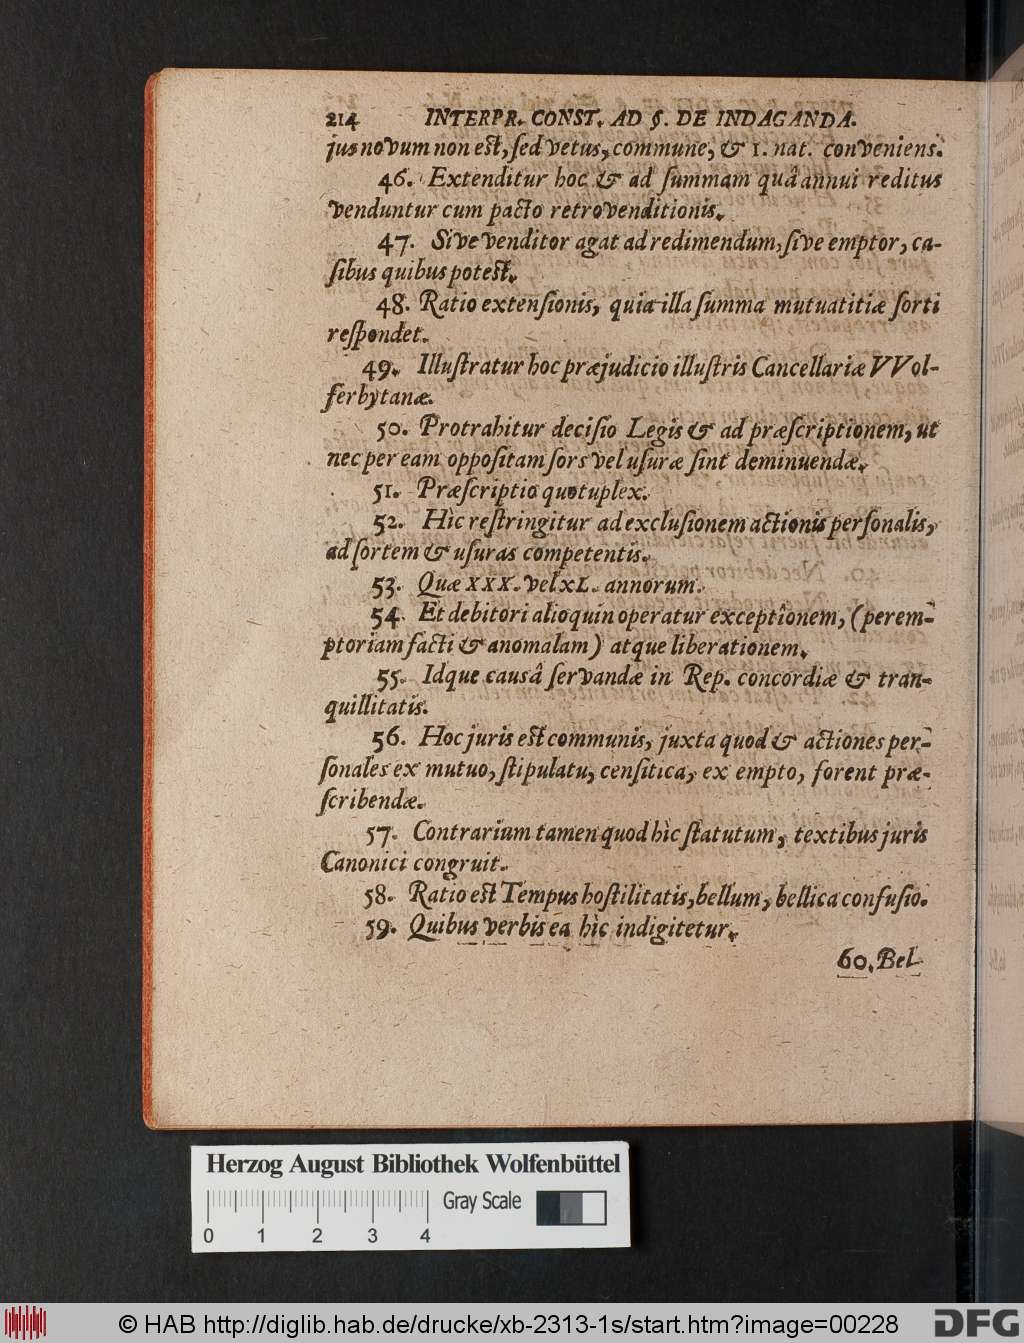 214 INTERPR. CONST. AD §. DE INDAGANDA.
jus novum non est, sed vetus, commune, & I. nat. conveniens.
46. Extenditur hoc & ad summam quâ annui reditus
venduntur cum pacto retrovenditionis.
47. Sive venditor agat ad redimendum, sive emptor, ca-
sibus quibus potest.
48. Ratio extensionis, quia illa summa mutuatitiæ sorti
respondet.
49. Illustratur hoc præjudicio illustris Cancellariæ VVol-
ferbytanæ.
50. Protrahitur decisio Legis & ad præscriptionem, ut
nec per eam oppositam sors vel usuræ sint deminuendæ.
51. Præscriptio quotuplex.
52. Hìc restringitur ad exclusionem actionis personalis,
ad sortem & usuras competentis.
53. Quæ XXX. vel XL. annorum.
54. Et debitori alioquin operatur exceptionem, (perem-
ptoriam facti & anomalam) atque liberationem.
55. Idque causâ servandæ in Rep. concordiæ & tran-
quillitatis.
56. Hoc juris est communis, juxta quod & actiones per-
sonales ex mutuo, stipulatu, censitica, ex empto, forent præ-
scribendæ.
57. Contrarium tamen quod hìc statutum, textibus juris
Canonici congruit.
58. Ratio est Tempus hostilitatis, bellum, bellica confusio.
59. Quibus verbis ea hìc indigitetur.
60. Bel
Herzog August Bibliothek Wolfenbüttel
Gray Scale
0 1 2 3 4
© HAB http://diglib.hab.de/drucke/xb-2313-1s/start.htm?image=00228
DFG